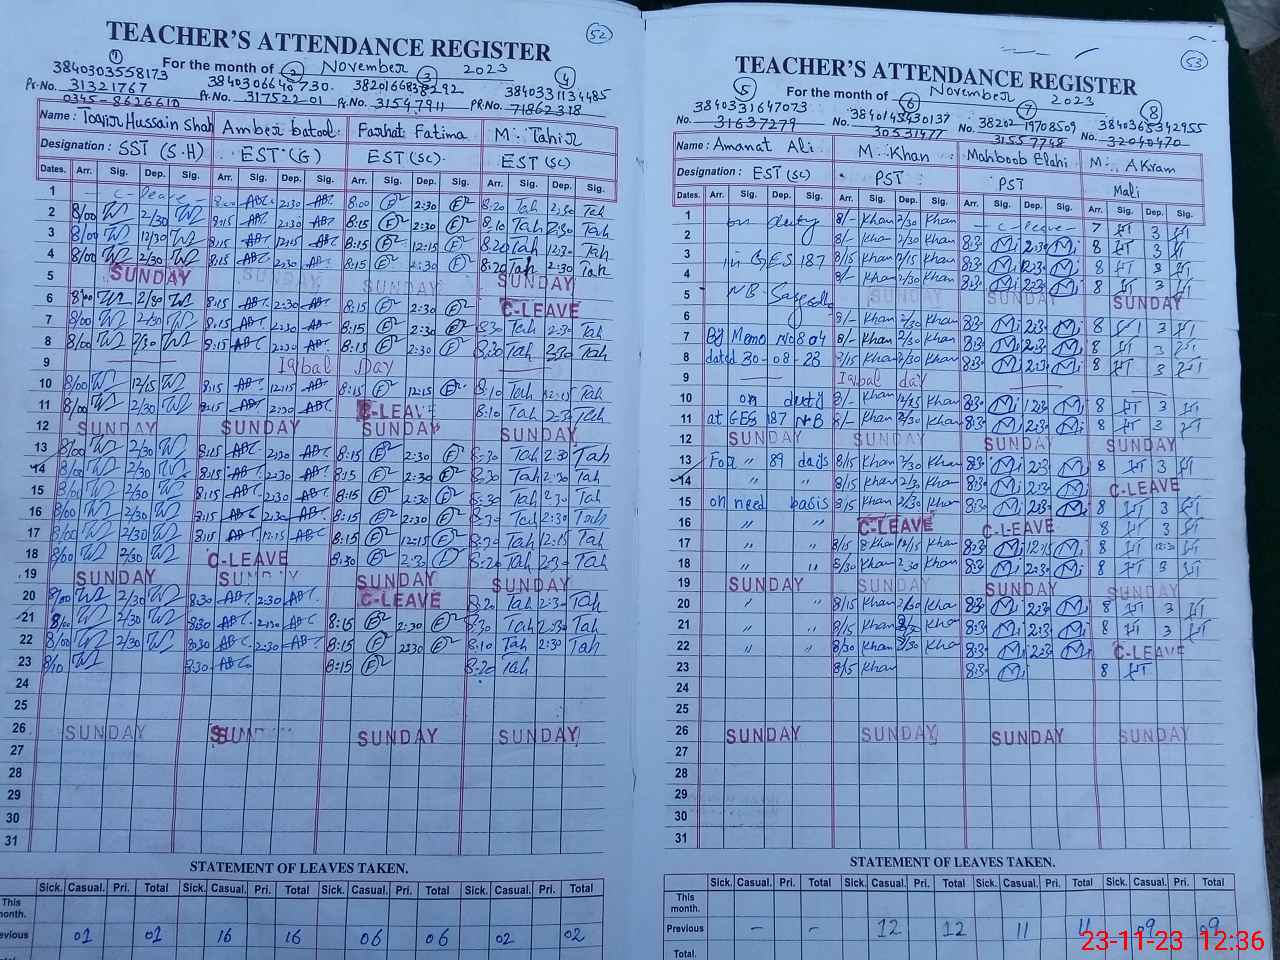 52
TEACHER'S ATTENDANCE REGISTER
For the month of November 2023
1 2 3 4
3840303558173 3840306640730 3820166838292 3840331134485
Pr.No. 31321767 Pr.No. 31752201 Pr.No. 31597911 PR.No. 71862318
0345-8626610
Name: Toqir Hussain Shah Amber batool Farhat Fatima M. Tahir
Designation: SST (S.H) EST (G) EST (SC) EST (SC)
Dates. Arr. Sig. Dep. Sig. Arr. Sig. Dep. Sig. Arr. Sig. Dep. Sig. Arr. Sig. Dep. Sig.
1 - C-leave - 8:00 2:30 8:00 2:30 8:20 Tah 2:30 Tah
2 8/00 2/30 8:15 2:30 8:15 2:30 8:10 Tah 2:30 Tah
3 8/00 12/30 8:15 12:15 8:15 12:15 8:20 Tah 12:30 Tah
4 8/00 2/30 8:15 2:30 8:15 2:30 8:20 Tah 2:30 Tah
5 SUNDAY SUNDAY SUNDAY SUNDAY
6 8/00 2/30 8:15 2:30 8:15 2:30 C-LEAVE
7 8/00 2/30 8:15 2:30 8:15 2:30 8:30 Tah 2:30 Tah
8 8/00 2/30 8:15 2:30 8:15 2:30 8:20 Tah 2:30 Tah
9 Iqbal Day
10 8/00 12/15 8:15 12:15 8:15 12:15 8:10 Tah 12:15 Tah
11 8/00 2/30 8:15 2:30 C-LEAVE 8:10 Tah 2:30 Tah
12 SUNDAY SUNDAY SUNDAY SUNDAY
13 8/00 2/30 8:15 2:30 8:15 2:30 8:20 Tah 2:30 Tah
14 8/00 2/30 8:15 2:30 8:15 2:30 8:20 Tah 2:30 Tah
15 8/00 2/30 8:15 2:30 8:15 2:30 8:30 Tah 2:30 Tah
16 8/00 2/30 8:15 2:30 8:15 2:30 8:20 Tah 2:30 Tah
17 8/00 2/30 8:15 12:15 8:15 12:15 8:20 Tah 12:15 Tah
18 8/00 2/30 C-LEAVE 8:30 2:30 8:20 Tah 2:30 Tah
19 SUNDAY SUNDAY SUNDAY SUNDAY
20 8/00 2/30 8:30 2:30 C-LEAVE 8:20 Tah 2:30 Tah
21 8/00 2/30 8:30 2:30 8:15 2:30 8:30 Tah 2:30 Tah
22 8/00 2/30 8:30 2:30 8:15 2:30 8:10 Tah 2:30 Tah
23 8/10 8:30 8:15 8:20 Tah
24
25
26 SUNDAY SUN SUNDAY SUNDAY
27
28
29
30
31
STATEMENT OF LEAVES TAKEN.
Sick. Casual. Pri. Total Sick. Casual. Pri. Total Sick. Casual. Pri. Total Sick. Casual. Pri. Total
This
month.
Previous 01 01 16 16 06 06 02 02
53
TEACHER'S ATTENDANCE REGISTER
For the month of November 2023
5 6 7 8
3840331647073 3840145430137 3820219708509 3840365342955
No. 31637279 No. 30531477 No. 31557748 No. 32040470
Name: Amanat Ali M. Khan Mahboob Elahi M. AKram
Designation: EST (SC) PST PST Mali
Dates. Arr. Sig. Dep. Sig. Arr. Sig. Dep. Sig. Arr. Sig. Dep. Sig. Arr. Sig. Dep. Sig.
1 on duty 8/- Khan 2/30 Khan - C-leave - 7 3
2 8/- Khan 2/30 Khan 8:3 2:3 8 3
3 in GES 187 8/15 Khan 2/15 Khan 8:3 12:3 8 3
4 8/- Khan 2/30 Khan 8:3 2:3 8 3
5 NB Sargodha SUNDAY SUNDAY SUNDAY
6 8/- Khan 2/30 Khan 8:3 2:3 8 3
7 By Memo No 804 8/- Khan 2/30 Khan 8:3 2:3 8 3
8 dated 30-08-23 8/15 Khan 2/30 Khan 8:3 2:3 8 3
9 Iqbal day
10 on duty 8/- Khan 12/15 Khan 8:3 12:3 8 3
11 at GES 187 NB 8/- Khan 2/30 Khan 8:3 2:3 8 3
12 SUNDAY SUNDAY SUNDAY SUNDAY
13 For " 89 days 8/15 Khan 2/30 Khan 8:3 2:3 8 3
14 " " 8/15 Khan 2/30 Khan 8:3 2:3 C-LEAVE
15 on need basis 8/15 Khan 2/30 Khan 8:3 2:3 8 3
16 " " C-LEAVE C-LEAVE 8 3
17 " " 8/15 Khan 12/15 Khan 8:3 12:15 8 12:30
18 " " 8/30 Khan 2:30 Khan 8:3 2:3 8 3
19 SUNDAY SUNDAY SUNDAY SUNDAY
20 " " 8/15 Khan 2/30 Khan 8:3 2:3 8 3
21 " " 8/15 Khan Khan 8:3 2:3 8 3
22 " " 8/30 Khan 2/30 Khan 8:3 2:3 C-LEAVE
23 8/15 Khan 8:3 8
24
25
26 SUNDAY SUNDAY SUNDAY SUNDAY
27
28
29
30
31
STATEMENT OF LEAVES TAKEN.
Sick. Casual. Pri. Total Sick. Casual. Pri. Total Sick. Casual. Pri. Total Sick. Casual. Pri. Total
This
month.
Previous - - 12 12 11 11 09 09
Total.
23-11-23 12:36